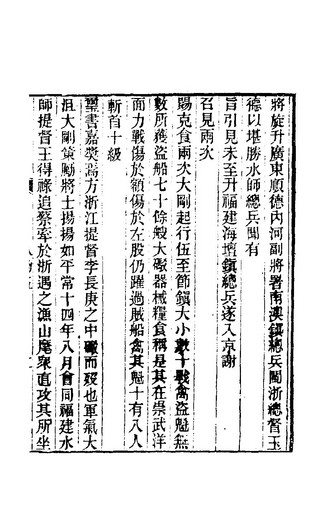 將旋升廣東順德內河副將署南澳鎮總兵閩浙總督玉
德以堪勝水師總兵聞有
旨引見未至升福建海壇鎮總兵遂入京謝
召見兩次
賜克食兩次大剛起行伍至節鎮大小數十戰禽盜魁無
數所獲盜船七十餘艘大礮器械糧食稱是其在崇武洋
面力戰傷於額傷於左股仍躍過賊船禽其魁十有八人
斬首十級
璽書嘉獎焉方浙江提督李長庚之中礮而歿也軍氣大
沮大剛策勵將士揚揚如平常十四年八月會同福建水
師提督王得祿追蔡牽於浙遇之漁山麾眾直攻其所坐